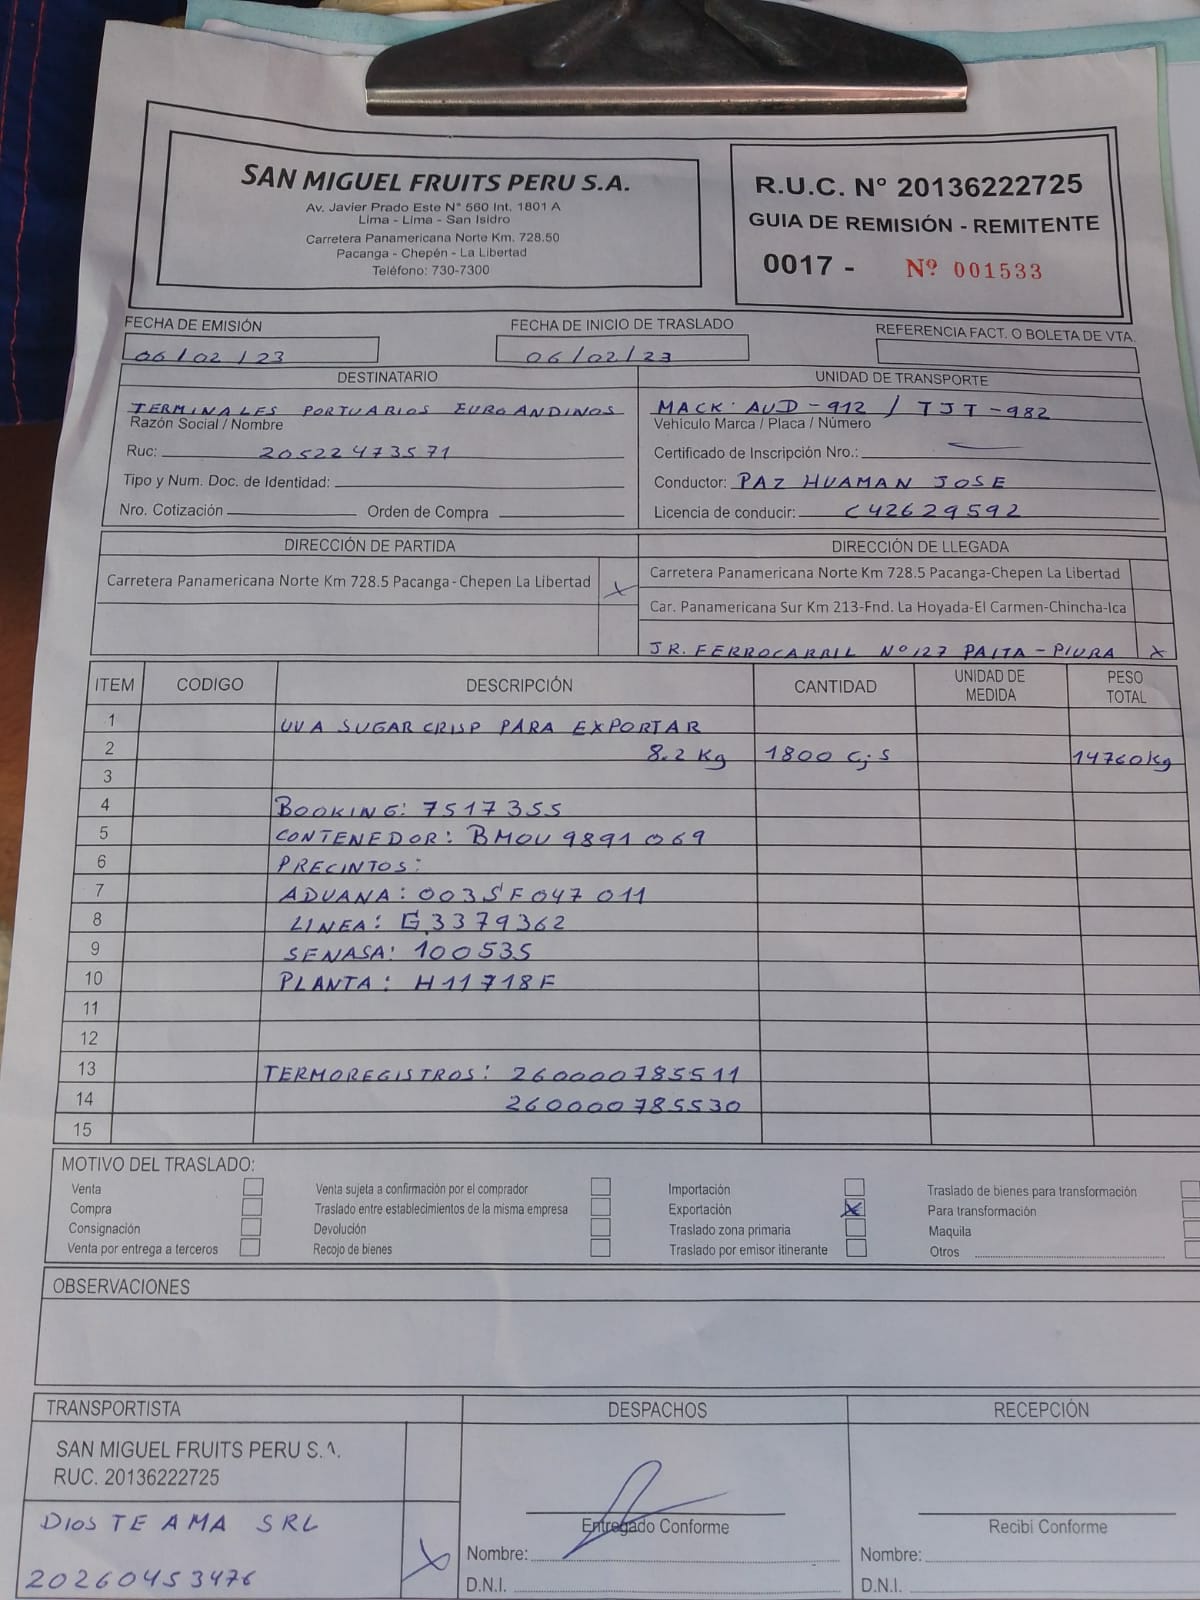 SAN MIGUEL FRUITS PERU S.A.
Av. Javier Prado Este N° 560 Int. 1801 A
Lima - Lima - San Isidro
Carretera Panamericana Norte Km. 728.50
Pacanga - Chepén - La Libertad
Teléfono: 730-7300
R.U.C. N° 20136222725
GUIA DE REMISIÓN - REMITENTE
0017 - Nº 001533
FECHA DE EMISIÓN
06/02/23
FECHA DE INICIO DE TRASLADO
06/02/23
REFERENCIA FACT. O BOLETA DE VTA.
DESTINATARIO
TERMINALES PORTUARIOS EUROANDINOS
Razón Social / Nombre
Ruc: 20522473571
Tipo y Num. Doc. de Identidad:
Nro. Cotización Orden de Compra
UNIDAD DE TRANSPORTE
MACK AUD-912 / TJT-982
Vehículo Marca / Placa / Número
Certificado de Inscripción Nro.:
Conductor: PAZ HUAMAN JOSE
Licencia de conducir: C42629592
DIRECCIÓN DE PARTIDA
Carretera Panamericana Norte Km 728.5 Pacanga-Chepen La Libertad X
DIRECCIÓN DE LLEGADA
Carretera Panamericana Norte Km 728.5 Pacanga-Chepen La Libertad
Car. Panamericana Sur Km 213-Fnd. La Hoyada-El Carmen-Chincha-Ica
JR. FERROCARRIL Nº127 PAITA-PIURA X
ITEM CODIGO DESCRIPCIÓN CANTIDAD UNIDAD DE MEDIDA PESO TOTAL
1 UVA SUGAR CRISP PARA EXPORTAR
2 8.2 Kg 1800 Cjs 14760kg
3
4 BOOKING: 7517355
5 CONTENEDOR: BMOU 9891069
6 PRECINTOS:
7 ADUANA: 003SF047011
8 LINEA: G3379362
9 SENASA: 100535
10 PLANTA: H11718F
11
12
13 TERMOREGISTROS: 260000785511
14 260000785530
15
MOTIVO DEL TRASLADO:
Venta
Compra
Consignación
Venta por entrega a terceros
Venta sujeta a confirmación por el comprador
Traslado entre establecimientos de la misma empresa
Devolución
Recojo de bienes
Importación
Exportación X
Traslado zona primaria
Traslado por emisor itinerante
Traslado de bienes para transformación
Para transformación
Maquila
Otros
OBSERVACIONES
TRANSPORTISTA
SAN MIGUEL FRUITS PERU S.A.
RUC. 20136222725
DIOS TE AMA SRL
20260453476 X
DESPACHOS
Entregado Conforme
Nombre:
D.N.I.
RECEPCIÓN
Recibi Conforme
Nombre:
D.N.I.